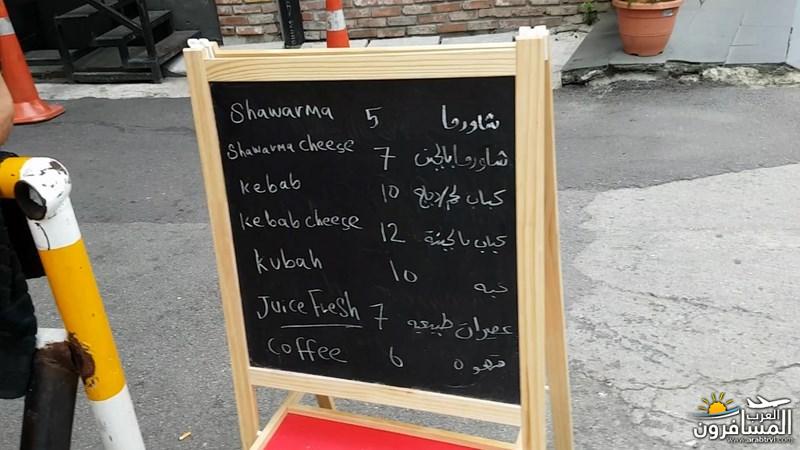 Shawarma 5 شاورما
Shawarma cheese 7 شاورما بالجبن
Kebab 10 كباب لحم/دجاج
Kebab cheese 12 كباب بالجبنة
Kubah 10 كبه
Juice Fresh 7 عصيرات طبيعيه
Coffee 6 قهوه
العرب
المسافرون
www.arabtrvl.com